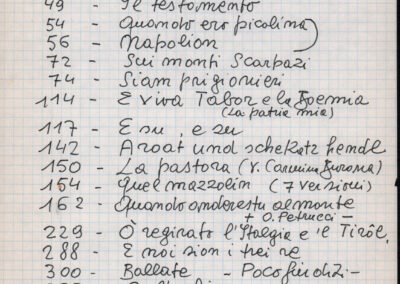 49 - Il testamento
54 - Quando ero picolina
56 - Napolion
72 - Sui monti Scarpazi
74 - Siam prigionieri
114 - E viva Tabor e la Boemia
(La patria mia)
117 - E su, e su
142 - Aroat und schekatz hendl
150 - La pastora (V. Carmina Burana)
154 - Quel mazzolin (7 versioni)
162 - Quando anderastu al monte
+ O. Petrucci -
229 - Ò regirato l'Italgia e 'l Tiròl
288 - E noi sion i trei re
300 - Ballate - Pocofindizi -